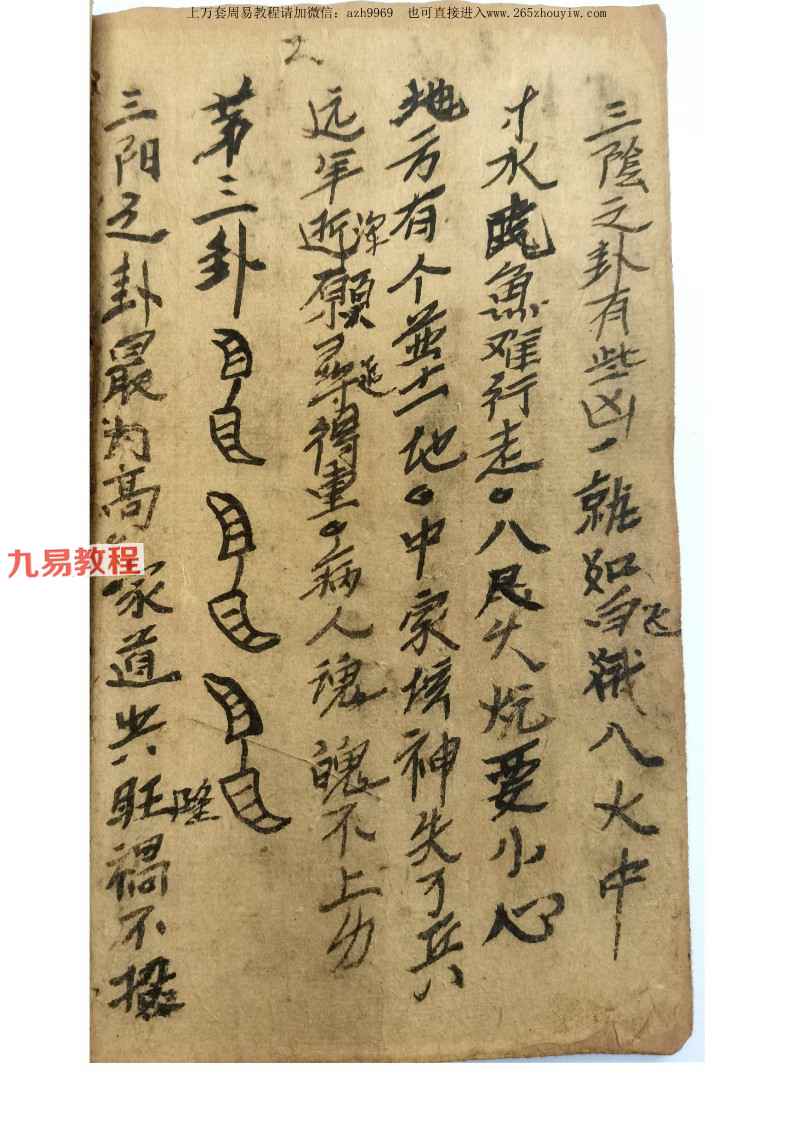 上万套周易教程请加微信:azh9969 也可直接进入www.265zhouyiw.com
三陰之卦有些凶、就如白飞蛾八火中
寸水 魚难行走。八民火炕要小心
地方有个 土地。中家坛神失了兵
远年逝 願尋得重。病人魂魄不上力
第三卦
三阳之卦最为高 家道兴旺隆禍不
九易教程